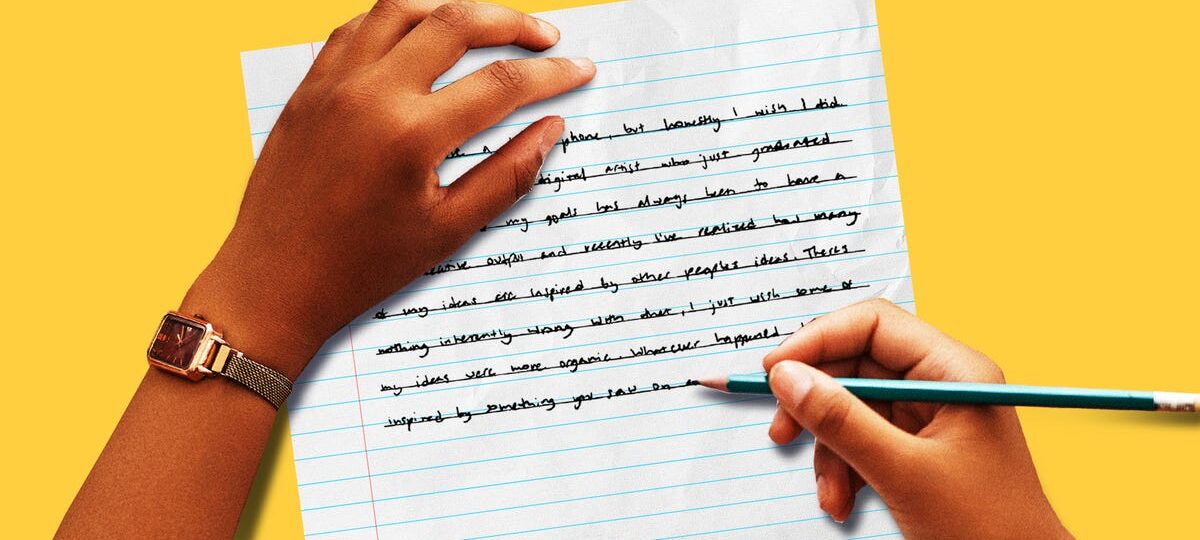 a phone, but honestly I wish I did.
digital artist who just graduated
my goals has always been to have a
creative output and recently I've realized how many
of my ideas are inspired by other people's ideas. There's
nothing inherently wrong with that, I just wish some of
my ideas were more organic. Whatever happened
inspired by something you saw on